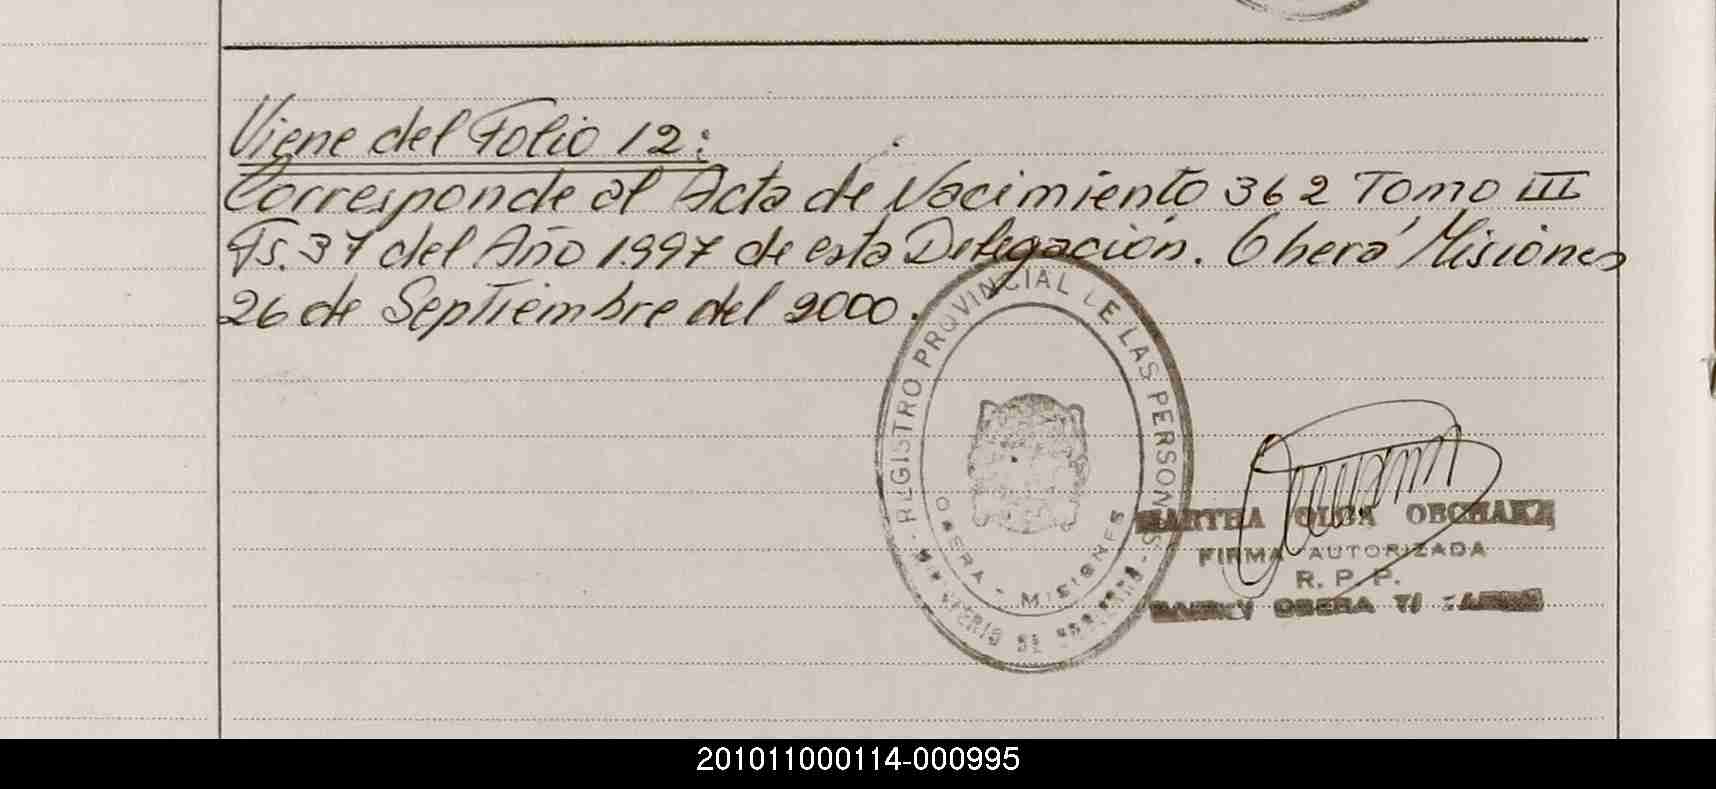 Viene del Folio 12:
Corresponde al Acta de Nacimiento 362 Tomo III
Fs. 37 del Año 1997 de esta Delegación. Oberá Misiones
26 de Septiembre del 2000.
REGISTRO PROVINCIAL DE LAS PERSONAS
OBERA - MISIONES
MINISTERIO DE
MARTHA OLGA
FIRMA AUTORIZADA
R. P. P.
OBERA
201011000114-000995